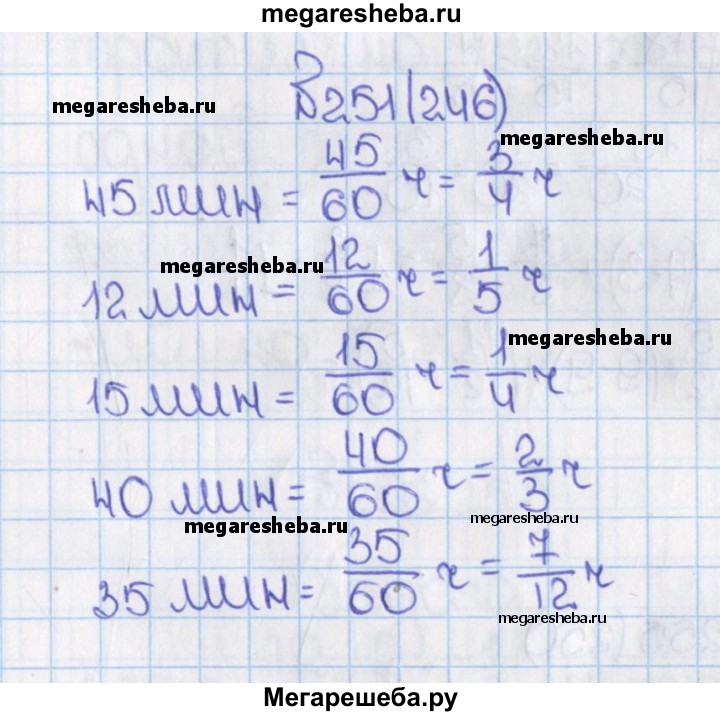 megaresheba.ru
№ 251 (246)
megaresheba.ru
megaresheba.ru
45 мин = 45/60 ч = 3/4 ч
megaresheba.ru
12 мин = 12/60 ч = 1/5 ч
megaresheba.ru
15 мин = 15/60 ч = 1/4 ч
40 мин = 40/60 ч = 2/3 ч
megaresheba.ru
megaresheba.ru
35 мин = 35/60 ч = 7/12 ч
megaresheba.ru
Мегарешеба.ру